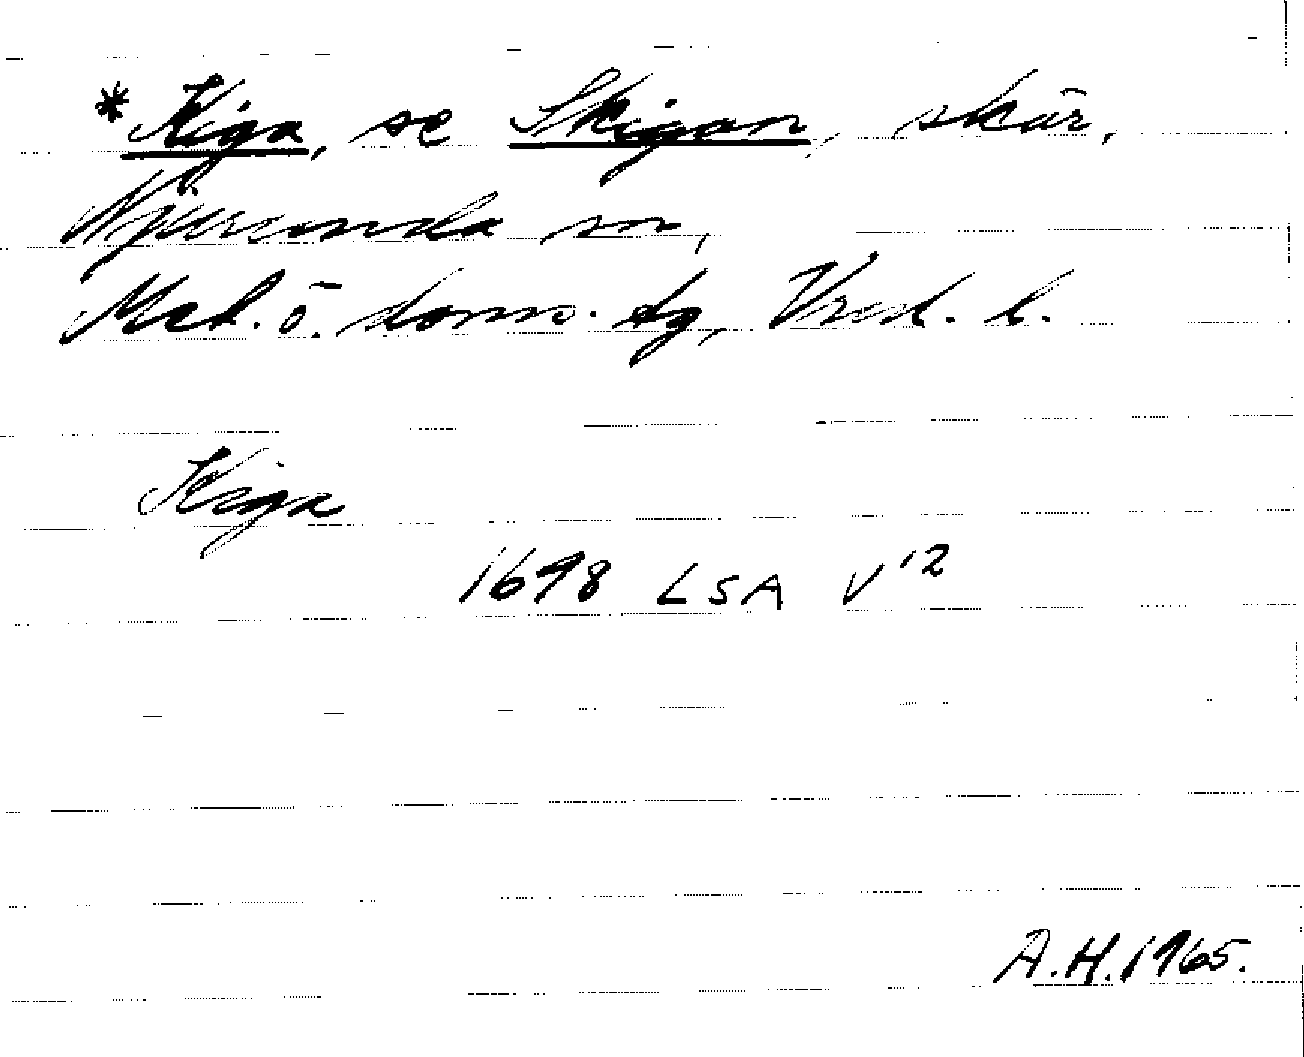 * Kiga, se Skigan, skär,
Njurunda sn,
Med. ö. doms. tg, Vned. l.
Kiga
1698 LSA V 12
A.H. 1965.